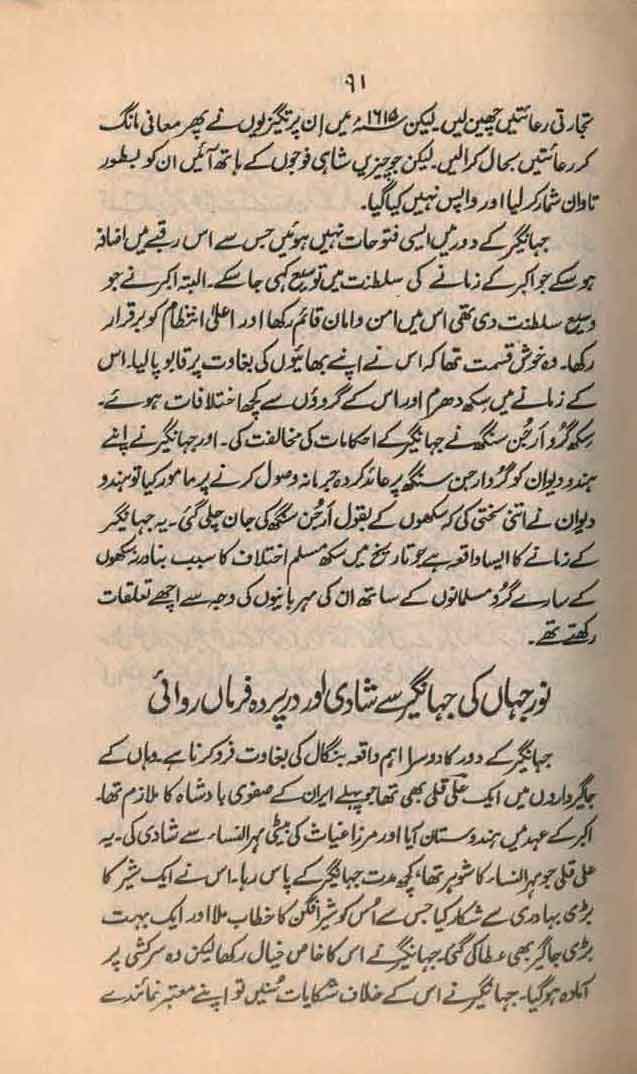 ۹۱
تجارتی رعائتیں چھین لیں۔ لیکن ۱۶۱۵ء میں ان پرتگیزیوں نے پھر معافی مانگ
کر رعائتیں بحال کرالیں۔ لیکن جو چیزیں شاہی فوجوں کے ہاتھ آئیں ان کو بطور
تاوان شمار کر لیا اور واپس نہیں کیا گیا۔
جہانگیر کے دور میں ایسی فتوحات نہیں ہوئیں جس سے اس رقبے میں اضافہ
ہو سکے جو اکبر کے زمانے کی سلطنت میں توسیع کہی جا سکے۔ البتہ اکبر نے جو
وسیع سلطنت دی تھی اس میں امن و امان قائم رکھا اور اعلیٰ انتظام کو برقرار
رکھا۔ وہ خوش قسمت تھا کہ اس نے اپنے بھائیوں کی بغاوت پر قابو پا لیا۔ اس
کے زمانے میں سکھ دھرم اور اس کے گروؤں سے کچھ اختلافات ہوئے۔
سکھ گُرو اَرجُن سنگھ نے جہانگیر کے احکامات کی مخالفت کی۔ اور جہانگیر نے اپنے
ہندو دیوان کو گُرو ارجن سنگھ پر عائد کردہ جرمانہ وصول کرنے پر مامور کیا تو ہندو
دیوان نے اتنی سختی کی کہ سکھوں کے بقول اَرجُن سنگھ کی جان چلی گئی۔ یہ جہانگیر
کے زمانے کا ایسا واقعہ ہے جو تاریخ میں سکھ مسلم اختلاف کا سبب بنا ورنہ سکھوں
کے سارے گُرو مسلمانوں کے ساتھ ان کی مہربانیوں کی وجہ سے اچھے تعلقات
رکھتے تھے۔
نورجہاں کی جہانگیر سے شادی اور در پردہ فرماں روائی
جہانگیر کے دور کا دوسرا اہم واقعہ بنگال کی بغاوت فرو کرنا ہے۔ وہاں کے
جاگیرداروں میں ایک علی قلی بھی تھا جو پہلے ایران کے صفوی بادشاہ کا ملازم تھا۔
اکبر کے عہد میں ہندوستان آیا اور مرزا غیاث کی بیٹی مہرالنساء سے شادی کی۔ یہ
علی قلی جو مہرالنساء کا شوہر تھا، کچھ مدت جہانگیر کے پاس رہا۔ اس نے ایک شیر کا
بڑی بہادری سے شکار کیا جس سے اُس کو شیر افگن کا خطاب ملا اور ایک بہت
بڑی جاگیر بھی عطا کی گئی۔ جہانگیر نے اس کا خاص خیال رکھا لیکن وہ سرکشی پر
آمادہ ہو گیا۔ جہانگیر نے اس کے خلاف شکایات سُنیں تو اپنے معتبر نمائندے